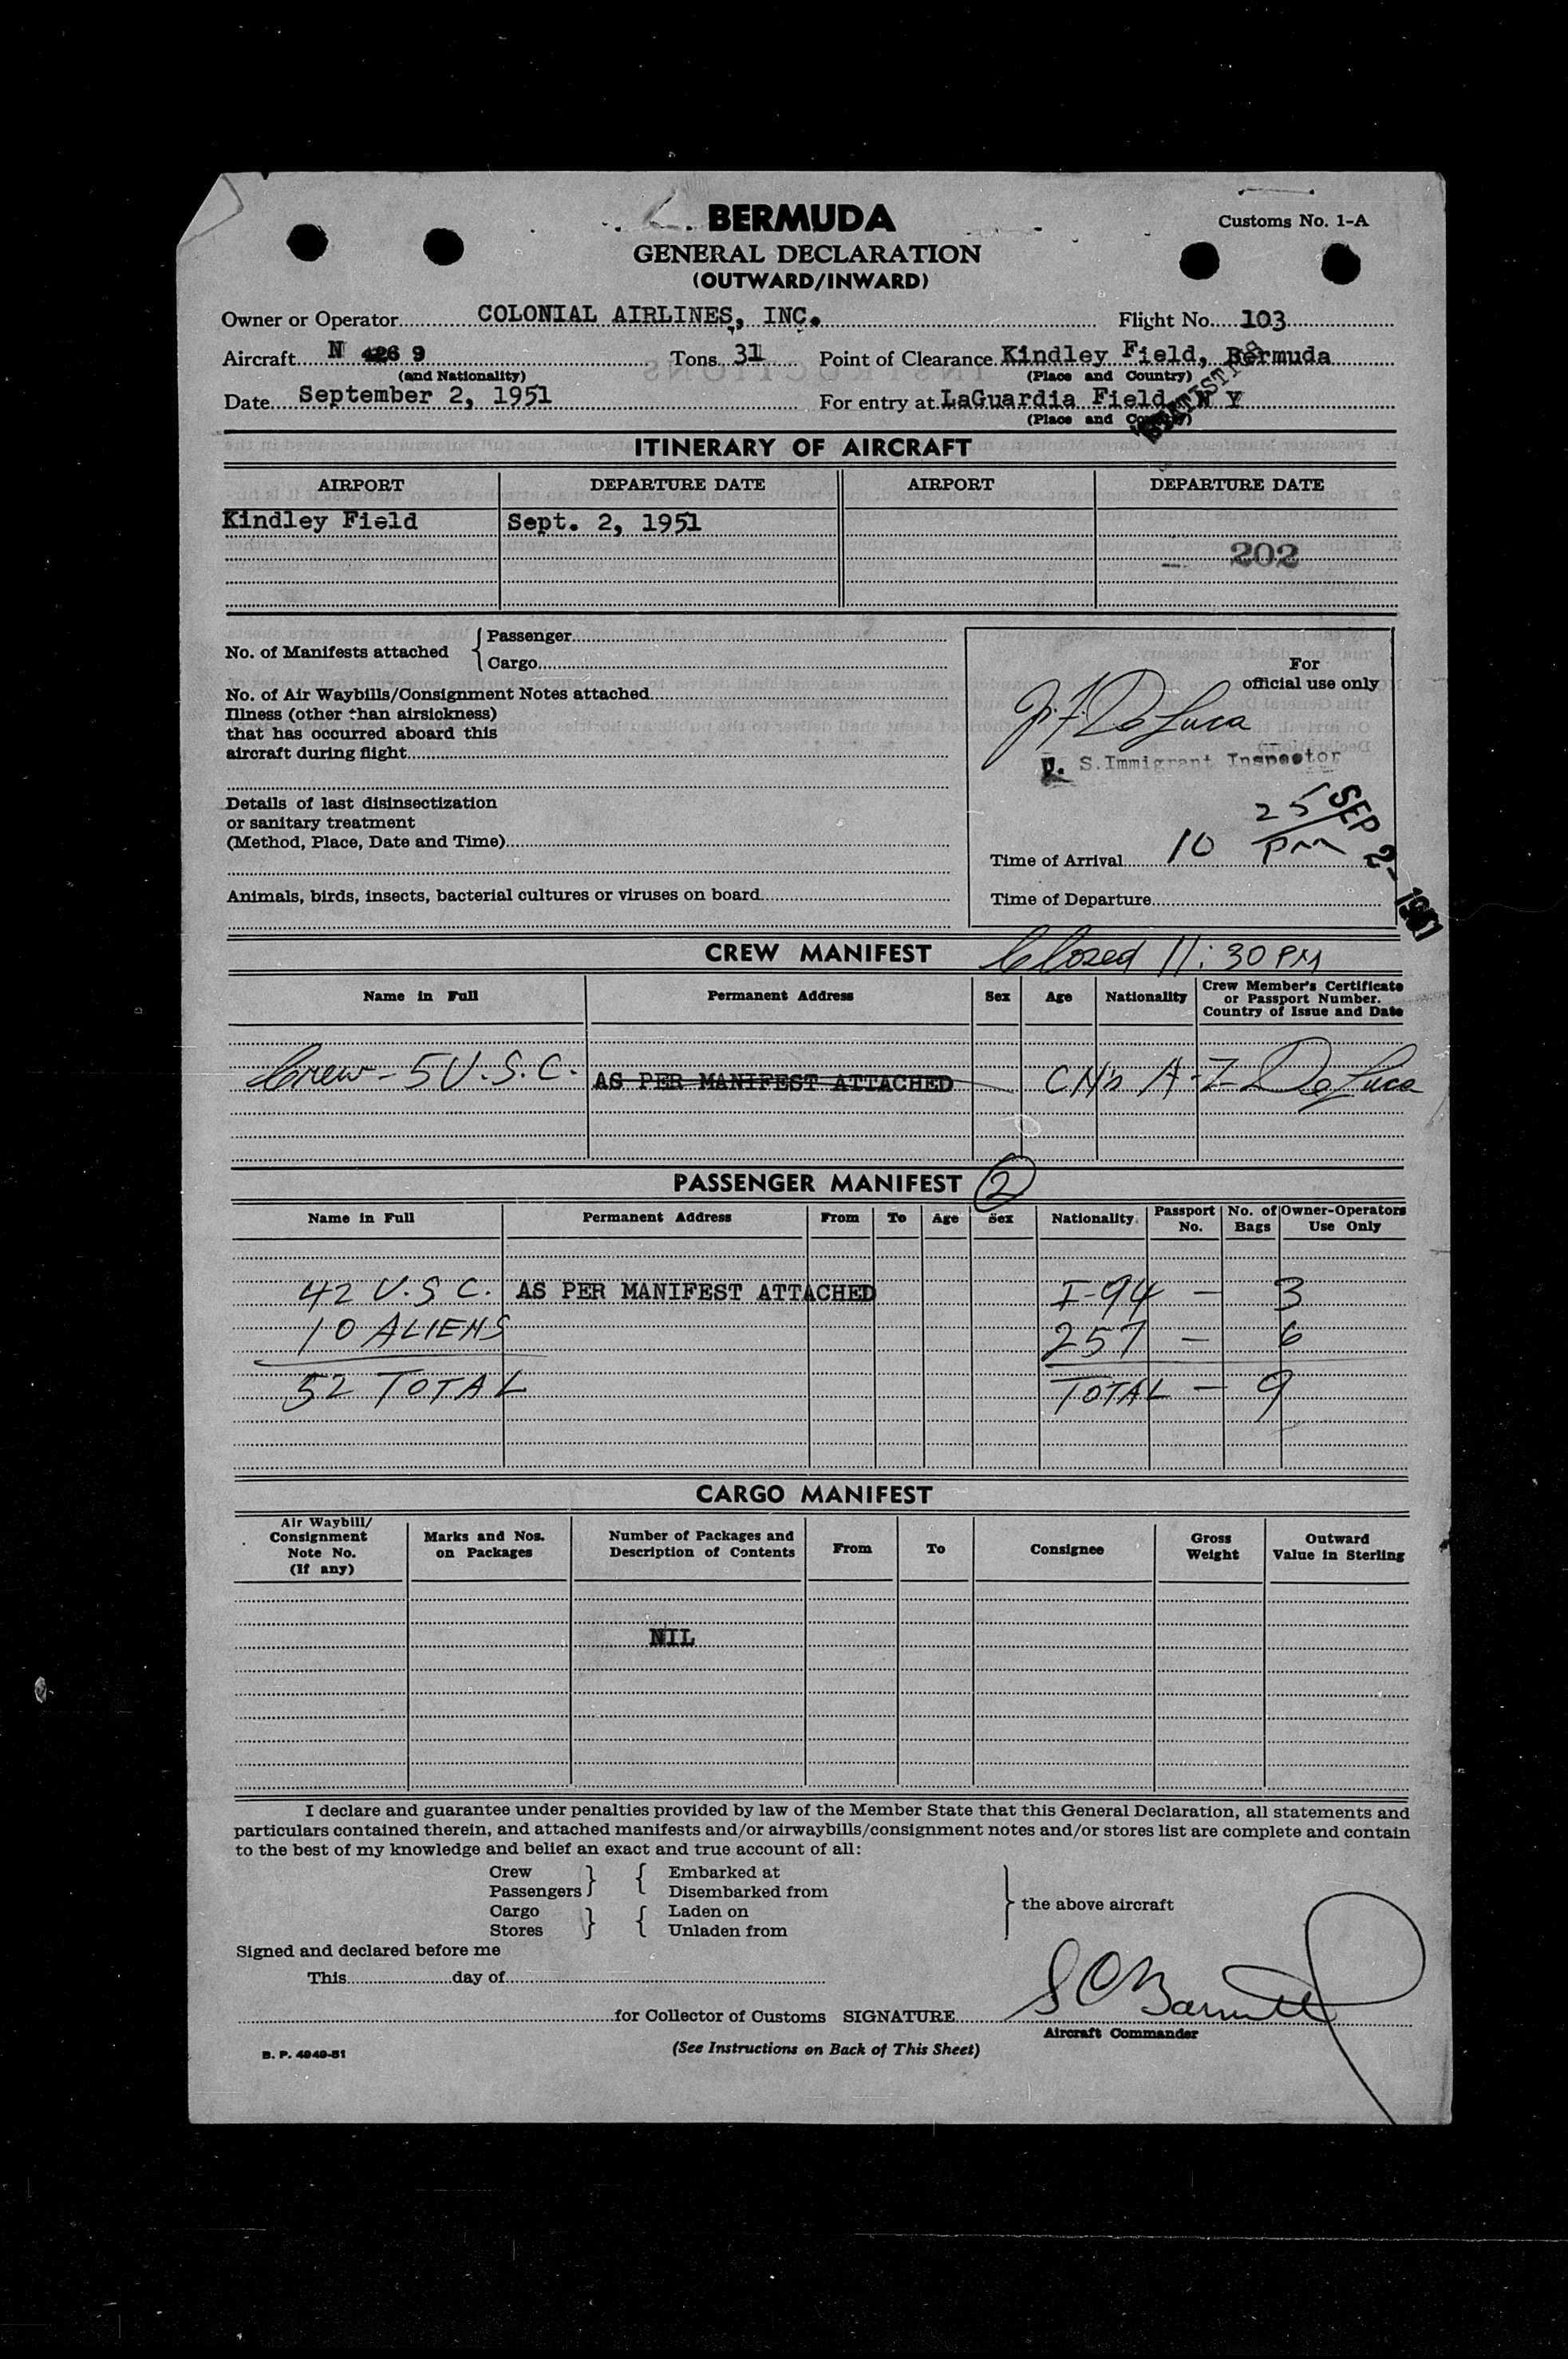 BERMUDA
Customs No. 1-A
GENERAL DECLARATION
(OUTWARD/INWARD)
Owner or Operator COLONIAL AIRLINES, INC. Flight No. 103
Aircraft N 9 Tons 31 Point of Clearance Kindley Field, Bermuda
(and Nationality) (Place and Country)
Date September 2, 1951 For entry at LaGuardia Field, N Y
(Place and Country)
ITINERARY OF AIRCRAFT
AIRPORT DEPARTURE DATE AIRPORT DEPARTURE DATE
Kindley Field Sept. 2, 1951
202
No. of Manifests attached { Passenger
Cargo
For
official use only
No. of Air Waybills/Consignment Notes attached
Illness (other than airsickness)
that has occurred aboard this
aircraft during flight
J. F. De Luca
U. S. Immigrant Inspector
Details of last disinsectization
or sanitary treatment
(Method, Place, Date and Time)
Time of Arrival 10 25 PM
SEP 2 - 1951
Animals, birds, insects, bacterial cultures or viruses on board
Time of Departure
CREW MANIFEST Closed 11:30 PM
Name in Full Permanent Address Sex Age Nationality Crew Member's Certificate
or Passport Number.
Country of Issue and Date
Crew - 5 U.S.C. AS PER MANIFEST ATTACHED De Luca
PASSENGER MANIFEST 2
Name in Full Permanent Address From To Age Sex Nationality Passport No. No. of Bags Owner-Operators Use Only
42 U.S C. AS PER MANIFEST ATTACHED I-94 - 3
10 ALIENS 257 - 6
52 TOTAL TOTAL - 9
CARGO MANIFEST
Air Waybill/
Consignment
Note No.
(If any)
Marks and Nos.
on Packages
Number of Packages and
Description of Contents
From
To
Consignee
Gross
Weight
Outward
Value in Sterling
NIL
I declare and guarantee under penalties provided by law of the Member State that this General Declaration, all statements and
particulars contained therein, and attached manifests and/or airwaybills/consignment notes and/or stores list are complete and contain
to the best of my knowledge and belief an exact and true account of all:
Crew } { Embarked at
Passengers Disembarked from
Cargo } { Laden on
Stores Unladen from
} the above aircraft
Signed and declared before me
This day of
for Collector of Customs SIGNATURE
Aircraft Commander
B. P. 4949-51
(See Instructions on Back of This Sheet)